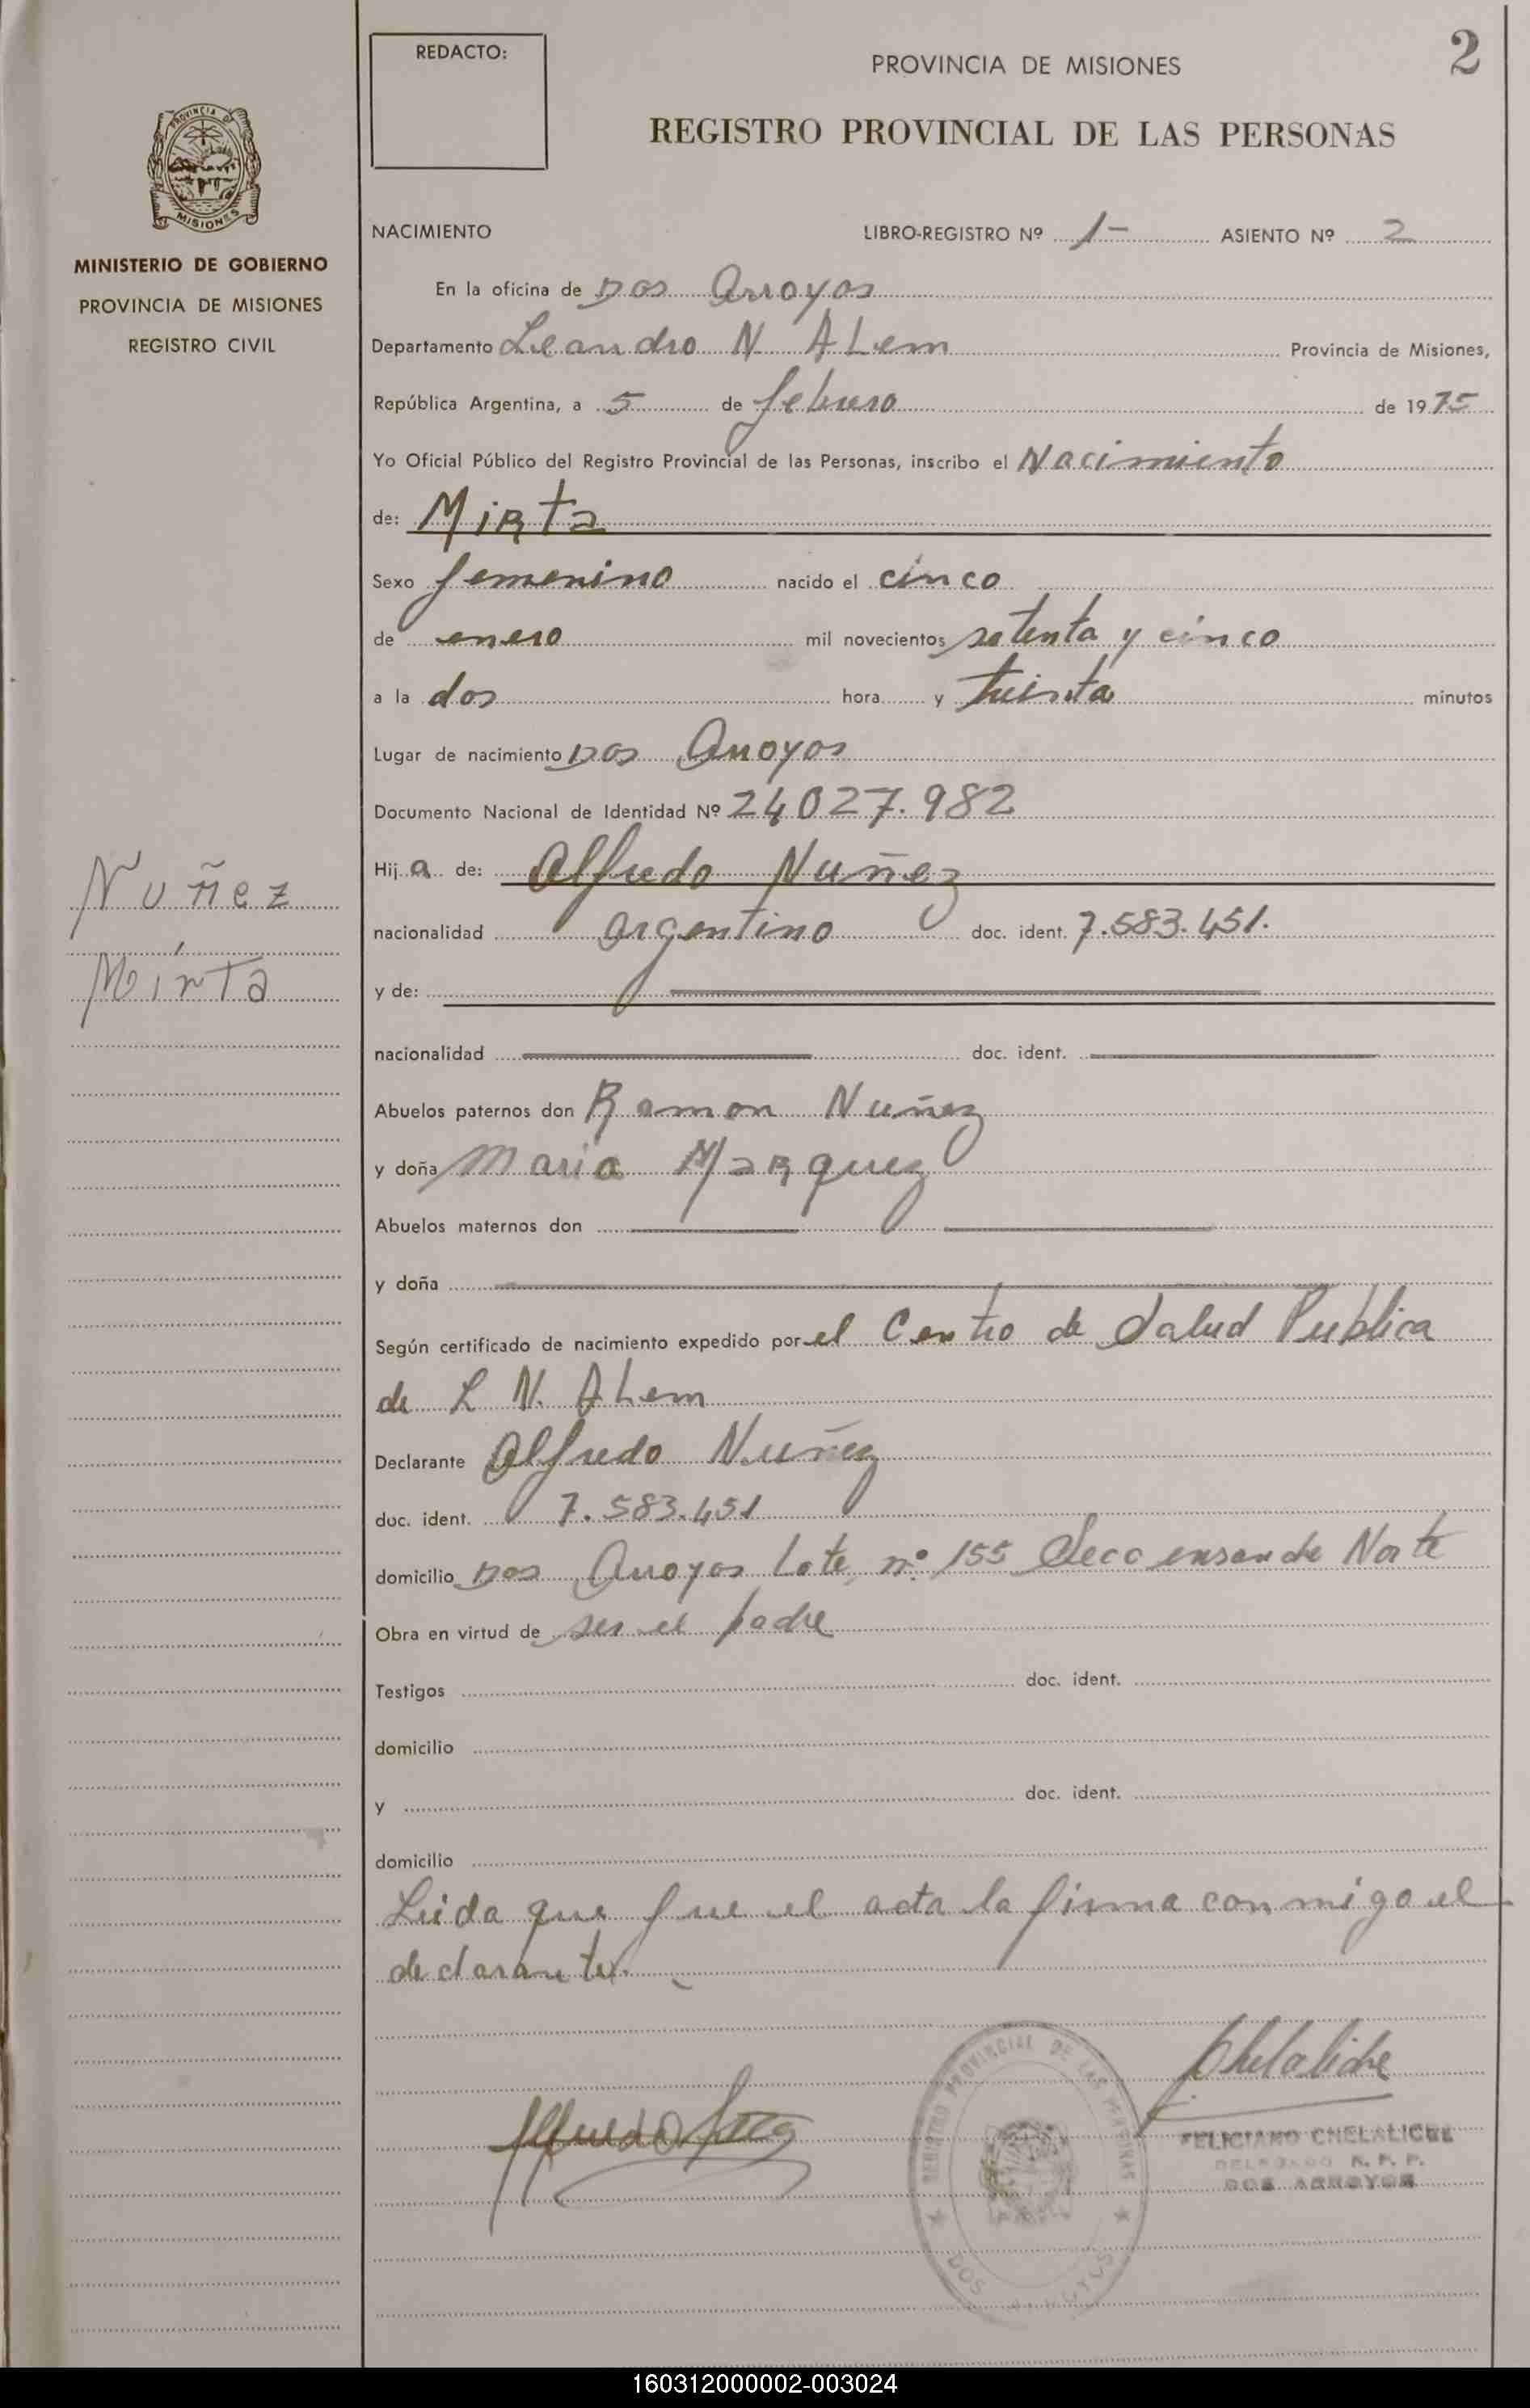 REDACTO:
PROVINCIA DE MISIONES
2
REGISTRO PROVINCIAL DE LAS PERSONAS
PROVINCIA DE
MISIONES
MINISTERIO DE GOBIERNO
PROVINCIA DE MISIONES
REGISTRO CIVIL
NACIMIENTO LIBRO-REGISTRO Nº 1- ASIENTO Nº 2
En la oficina de Dos Arroyos
Departamento Leandro N ALem Provincia de Misiones,
República Argentina, a 5 de febrero de 1975
Yo Oficial Público del Registro Provincial de las Personas, inscribo el Nacimiento
de: MiRta
Sexo femenino nacido el cinco
de enero mil novecientos setenta y cinco
a la dos hora y treinta minutos
Lugar de nacimiento Dos Arroyos
Documento Nacional de Identidad Nº 24027.982
Hija de: Alfredo Nuñez
nacionalidad argentino doc. ident. 7.583.451.
y de:
nacionalidad doc. ident.
Nuñez
Mirta
Abuelos paternos don Ramon Nuñez
y doña Maria MaRquez
Abuelos maternos don
y doña
Según certificado de nacimiento expedido por el Centro de Salud Publica
de L N. ALem
Declarante Alfredo Nuñez
doc. ident. 7.583.451
domicilio Dos Arroyos Lote nº 155 Secc ensanche Norte
Obra en virtud de ser el padre
Testigos doc. ident.
domicilio
y doc. ident.
domicilio
Leida que fue el acta la firma conmigo el
declarante.
Chelaliche
REGISTRO PROVINCIAL DE LAS PERSONAS
DOS ARROYOS
FELICIANO CHELALICHE
DELEGADO R. P. P.
DOS ARROYOS
160312000002-003024